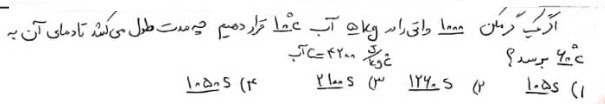 اگر یک گرمکن 1000 واتی را در 5kg آب 10°C قرار دهیم چه مدت طول می‌کشد تا دمای آن به
60°C برسد؟ C=4200 J/kg°C آب
1) 105 s 2) 1260 s 3) 2100 s 4) 1050 s